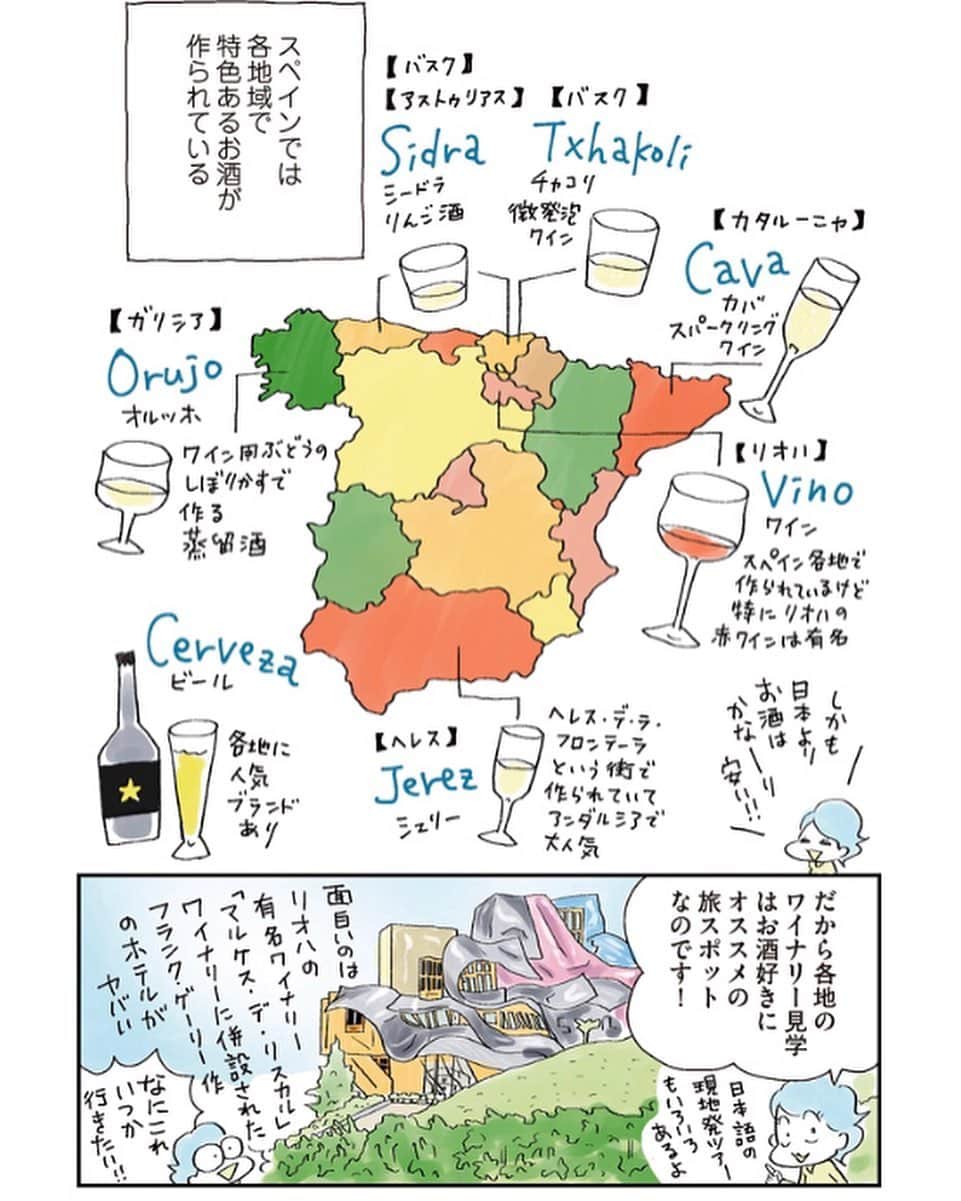 スペインでは
各地域で
特色あるお酒が
作られている
【バスク】
【アストゥリアス】
Sidra
シードラ
りんご酒
【バスク】
Txhakoli
チャコリ
微発泡
ワイン
【カタルーニャ】
Cava
カバ
スパークリング
ワイン
【ガリシア】
Orujo
オルッホ
ワイン用ぶどうの
しぼりかすで
作る
蒸留酒
【リオハ】
Vino
ワイン
スペイン各地で
作られているけど
特にリオハの
赤ワインは有名
Cerveza
ビール
各地に
人気
ブランド
あり
【ヘレス】
Jerez
シェリー
ヘレス・デ・ラ・
フロンテーラ
という街で
作られていて
アンダルシアで
大人気
しかも
日本より
お酒は
かなーり
安い!!
だから各地の
ワイナリー見学
はお酒好きに
オススメの
旅スポット
なのです!
日本語の
現地発ツアー
もいろいろ
あるよ
面白いのは
リオハの
有名ワイナリー
「マルケス・デ・リスカル」
ワイナリーに併設された
フランク・ゲーリー作
のホテルが
ヤバい
なにこれ
いつか
行きたい!!